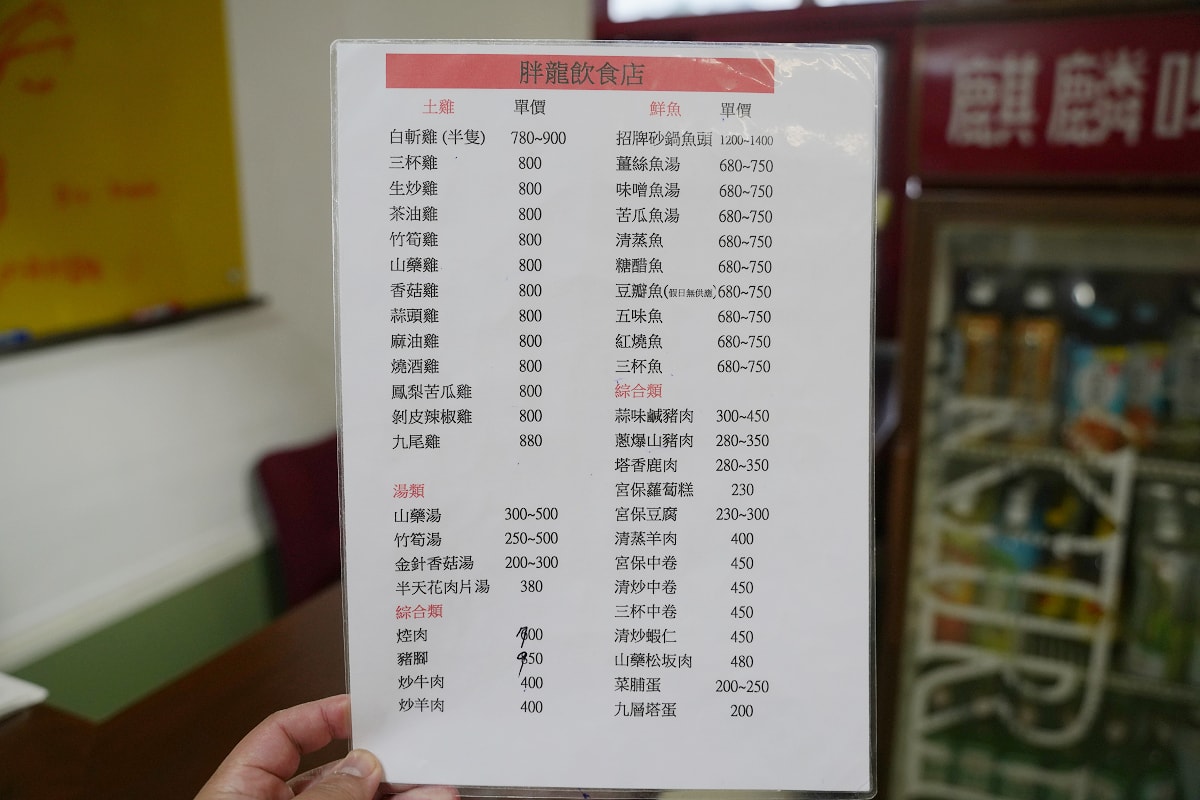 胖龍飲食店
土雞 單價
白斬雞 (半隻) 780~900
三杯雞 800
生炒雞 800
茶油雞 800
竹筍雞 800
山藥雞 800
香菇雞 800
蒜頭雞 800
麻油雞 800
燒酒雞 800
鳳梨苦瓜雞 800
剝皮辣椒雞 800
九尾雞 880
湯類
山藥湯 300~500
竹筍湯 250~500
金針香菇湯 200~300
半天花肉片湯 380
綜合類
焢肉 700
豬腳 950
炒牛肉 400
炒羊肉 400
鮮魚 單價
招牌砂鍋魚頭 1200~1400
薑絲魚湯 680~750
味噌魚湯 680~750
苦瓜魚湯 680~750
清蒸魚 680~750
糖醋魚 680~750
豆瓣魚(假日無供應) 680~750
五味魚 680~750
紅燒魚 680~750
三杯魚 680~750
綜合類
蒜味鹹豬肉 300~450
蔥爆山豬肉 280~350
塔香鹿肉 280~350
宮保蘿蔔糕 230
宮保豆腐 230~300
清蒸羊肉 400
宮保中卷 450
清炒中卷 450
三杯中卷 450
清炒蝦仁 450
山藥松坂肉 480
菜脯蛋 200~250
九層塔蛋 200
麒麟
KIRIN